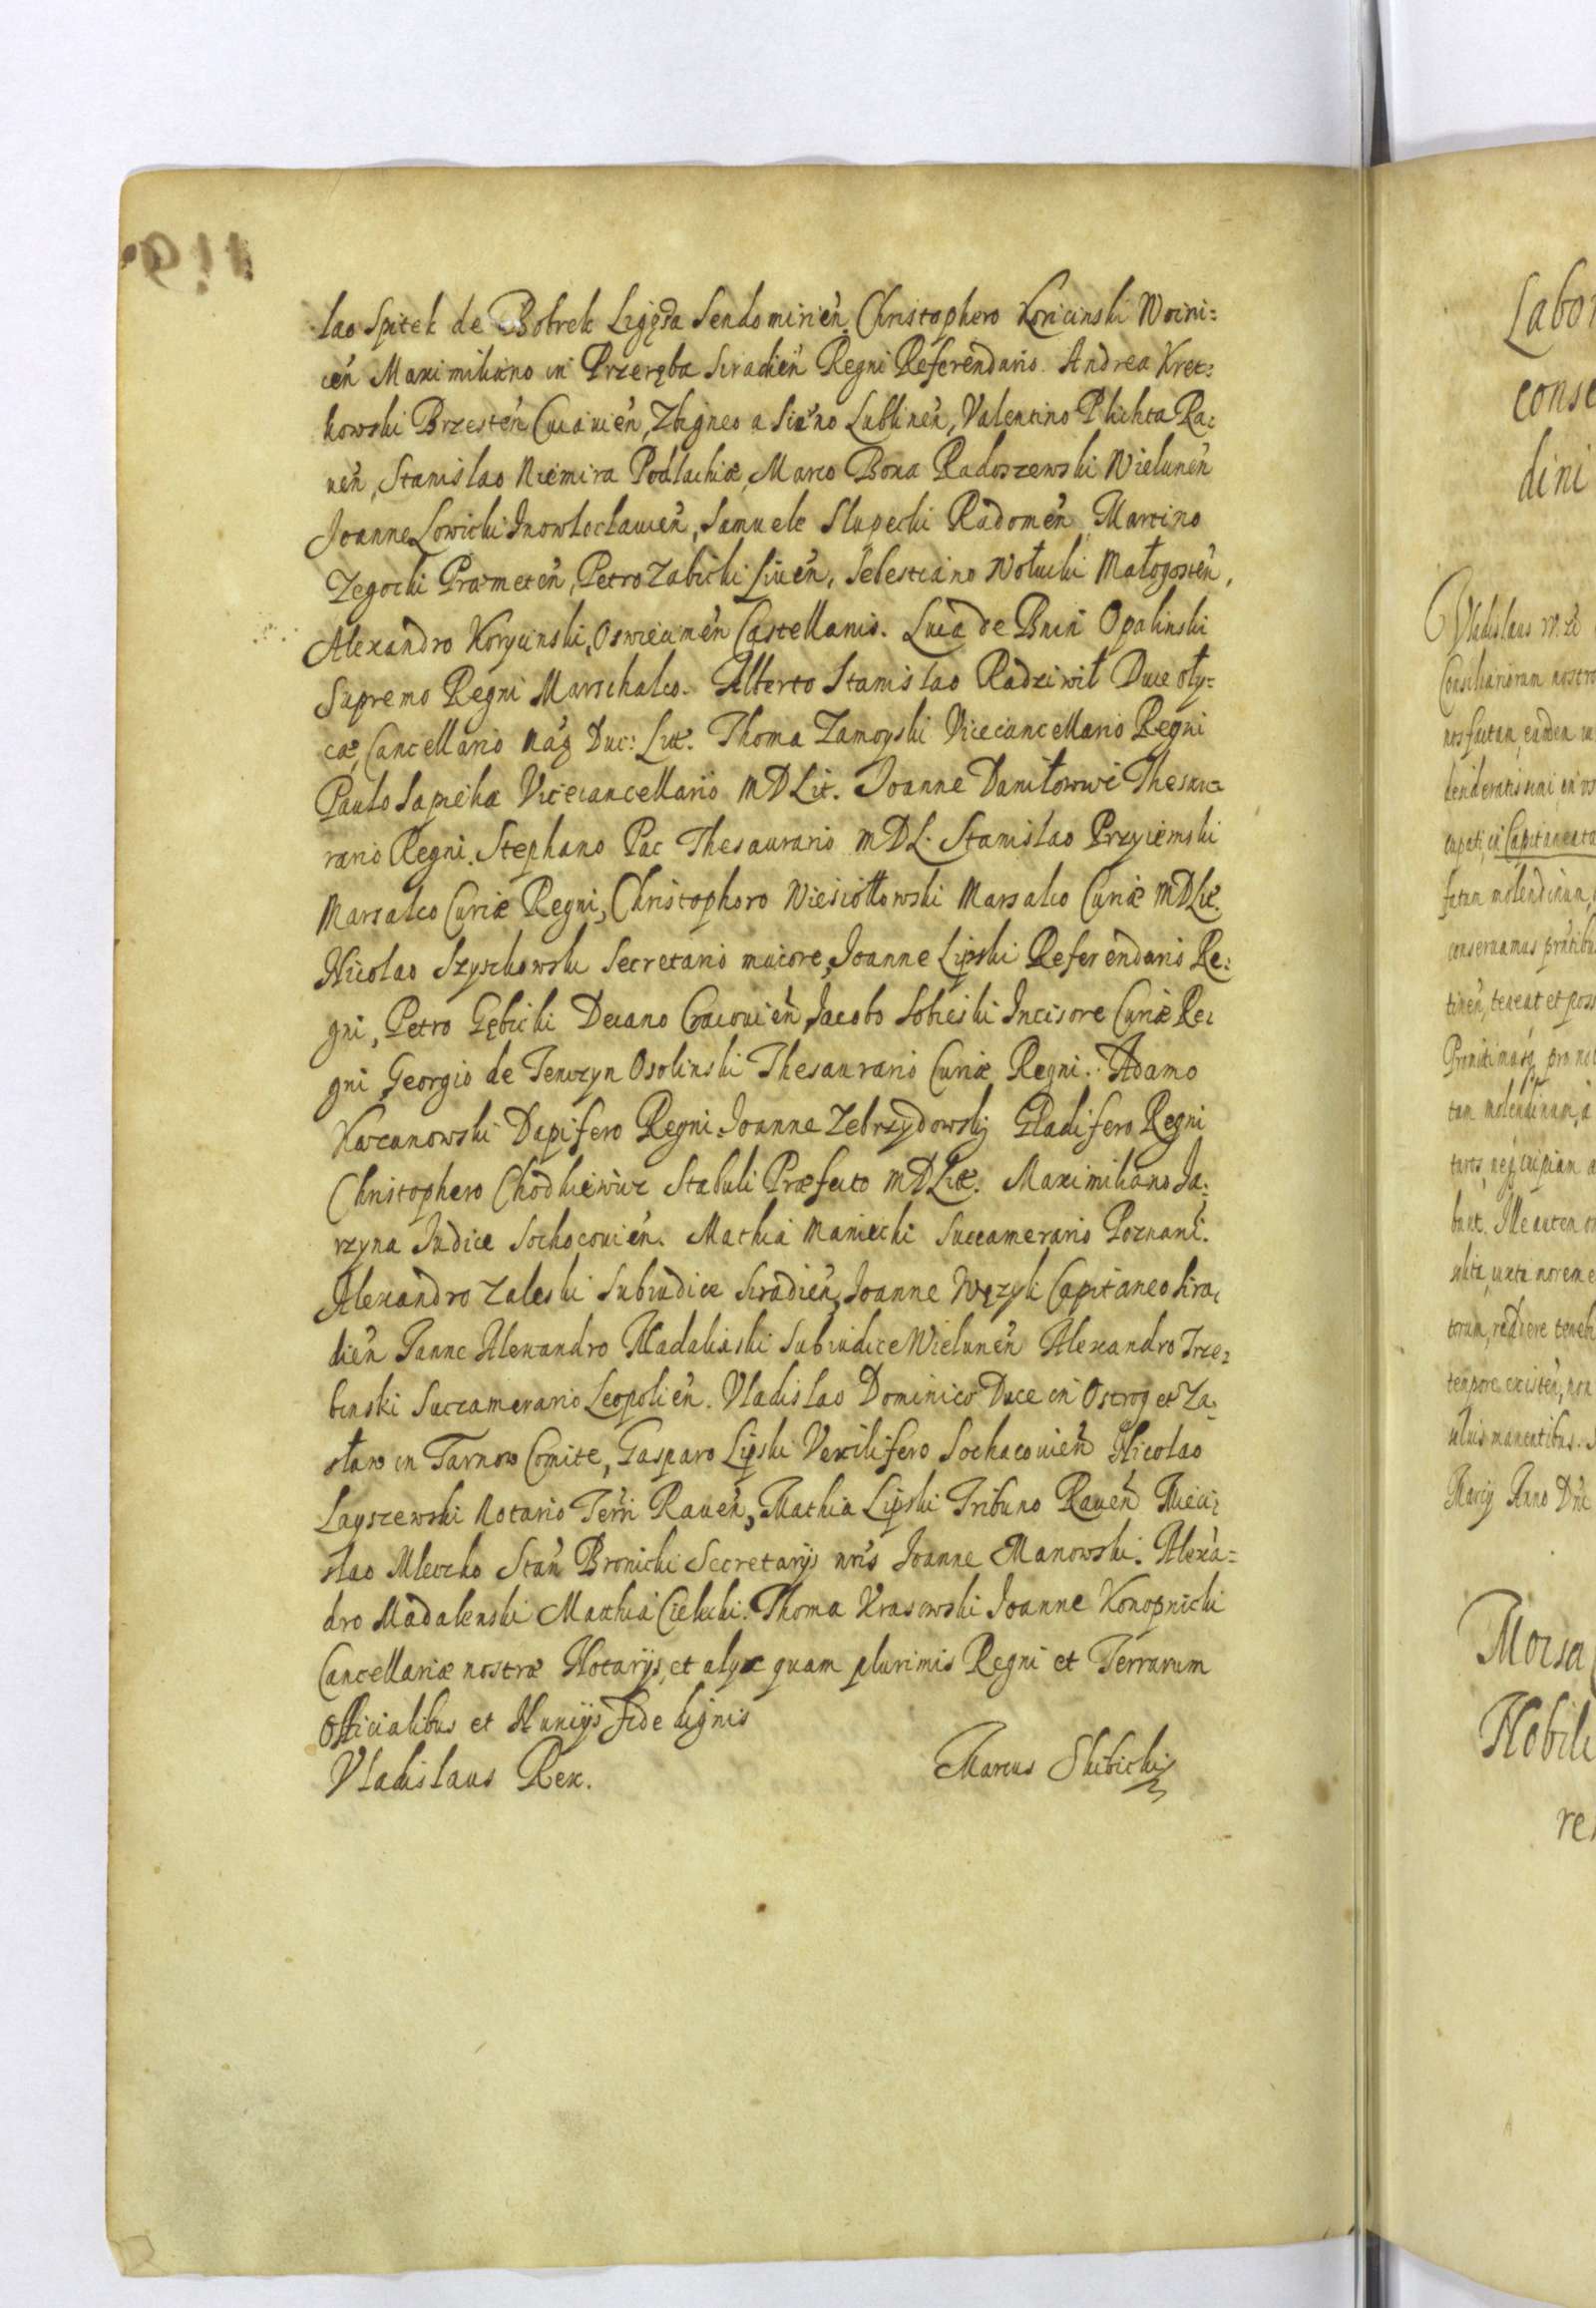 lao Spitek de Bobrek Ligęza Sendomirień, Christophero Koricinski Woini=
ceń Maximiliano in Przeręba Siradień Regni Referendario. Andrea Kret:
kowski Brzesteń Cuiauień, Zbigneo a Sieno Lublineń, Valentino Plichta Ra:
ueń, Stanislao Niemira Podlachiæ, Marco Boxa Radoszewski Wieluneń
Joanne Lowicki Inowlocławień, Samuele Slupecki Radomeń, Marcino
Zegocki Præmeteń, Petro Zabicki Liueń, Selestiano Wołucki Małogosień,
Alexandro Korycinski, Oswiecimeń Castellanis. Luca de Bnin Opalinski
Supremo Regni Marschalco. Alberto Stanislao Radziwił Duce Oły=
cæ, Cancellario Mag Duc: Lit. Thoma Zamoyski Vicecancellario Regni
Paulo Sapieha Vicecancellario MDLit. Joanne Daniłowic Thesau=
rario Regni. Stephano Pac Thesaurario MDL. Stanislao Przyiemski
Marsalco Curiæ Regni, Christophoro Wiesiołłowski Marsalco Curiæ MDLit.
Nicolao Szyszkowski Secretario maiore, Joanne Lipski Referendario Re:
gni, Petro Gębicki Decano Cracouień, Jacobo Sobieski Incisore Curiæ Re:
gni Georgio de Tenczyn Osolinski Thesaurario Curiæ Regni. Adamo
Kazanowski Dapifero Regni. Joanne Zebrzydowskij Gladifero Regni
Christophero Chodkiewicz Stabuli Præfecto MDLit. Maximiliano Ja:
rzyna Judice Sochocouień. Mathia Maniecki Succamerario Poznań.
Alexandro Zaleski Subiudice Siradień, Joanne Wężyk Capitaneo Sira:
dień Janne Alexandro Madaliński Subiudice Wieluneń Alexandro Trze:
binski Succamerario Leopolień. Vladislao Dominico Duce in Ostrog et Za:
sław in Tarnow Comite, Gasparo Lipski Vexilifero Sochacouień Nicolao
Layszewski Notario Terri Raueń, Mathia Lipski Tribuno Raueń Mieci:
slao Mleczko Stań Bronicki Secretarijs nris Joanne Manowski. Alexa=
dro Madalenski Mathia Cielecki. Thoma Krasowski Joanne Konopnicki
Cancellariæ nostræ Notarijs, et alijs quam plurimis Regni et Terrarum
Officialibus et Nuncijs Fide dignis
Vladislaus Rex. Marcus Skibicki
Labor
conse
dini
Vladislaus IV. Dei
Consiliariorum nostro
cupati, ex Capitaneata
fatum molendinum,
conseruamus
tineń, teneat et poss
tam molendinam, a
bunt. Ille autem
torum, reddere teneb
tempore existeń, non
saluis manentibus.
Marcij Anno Dni
Morsa
Nobili
re